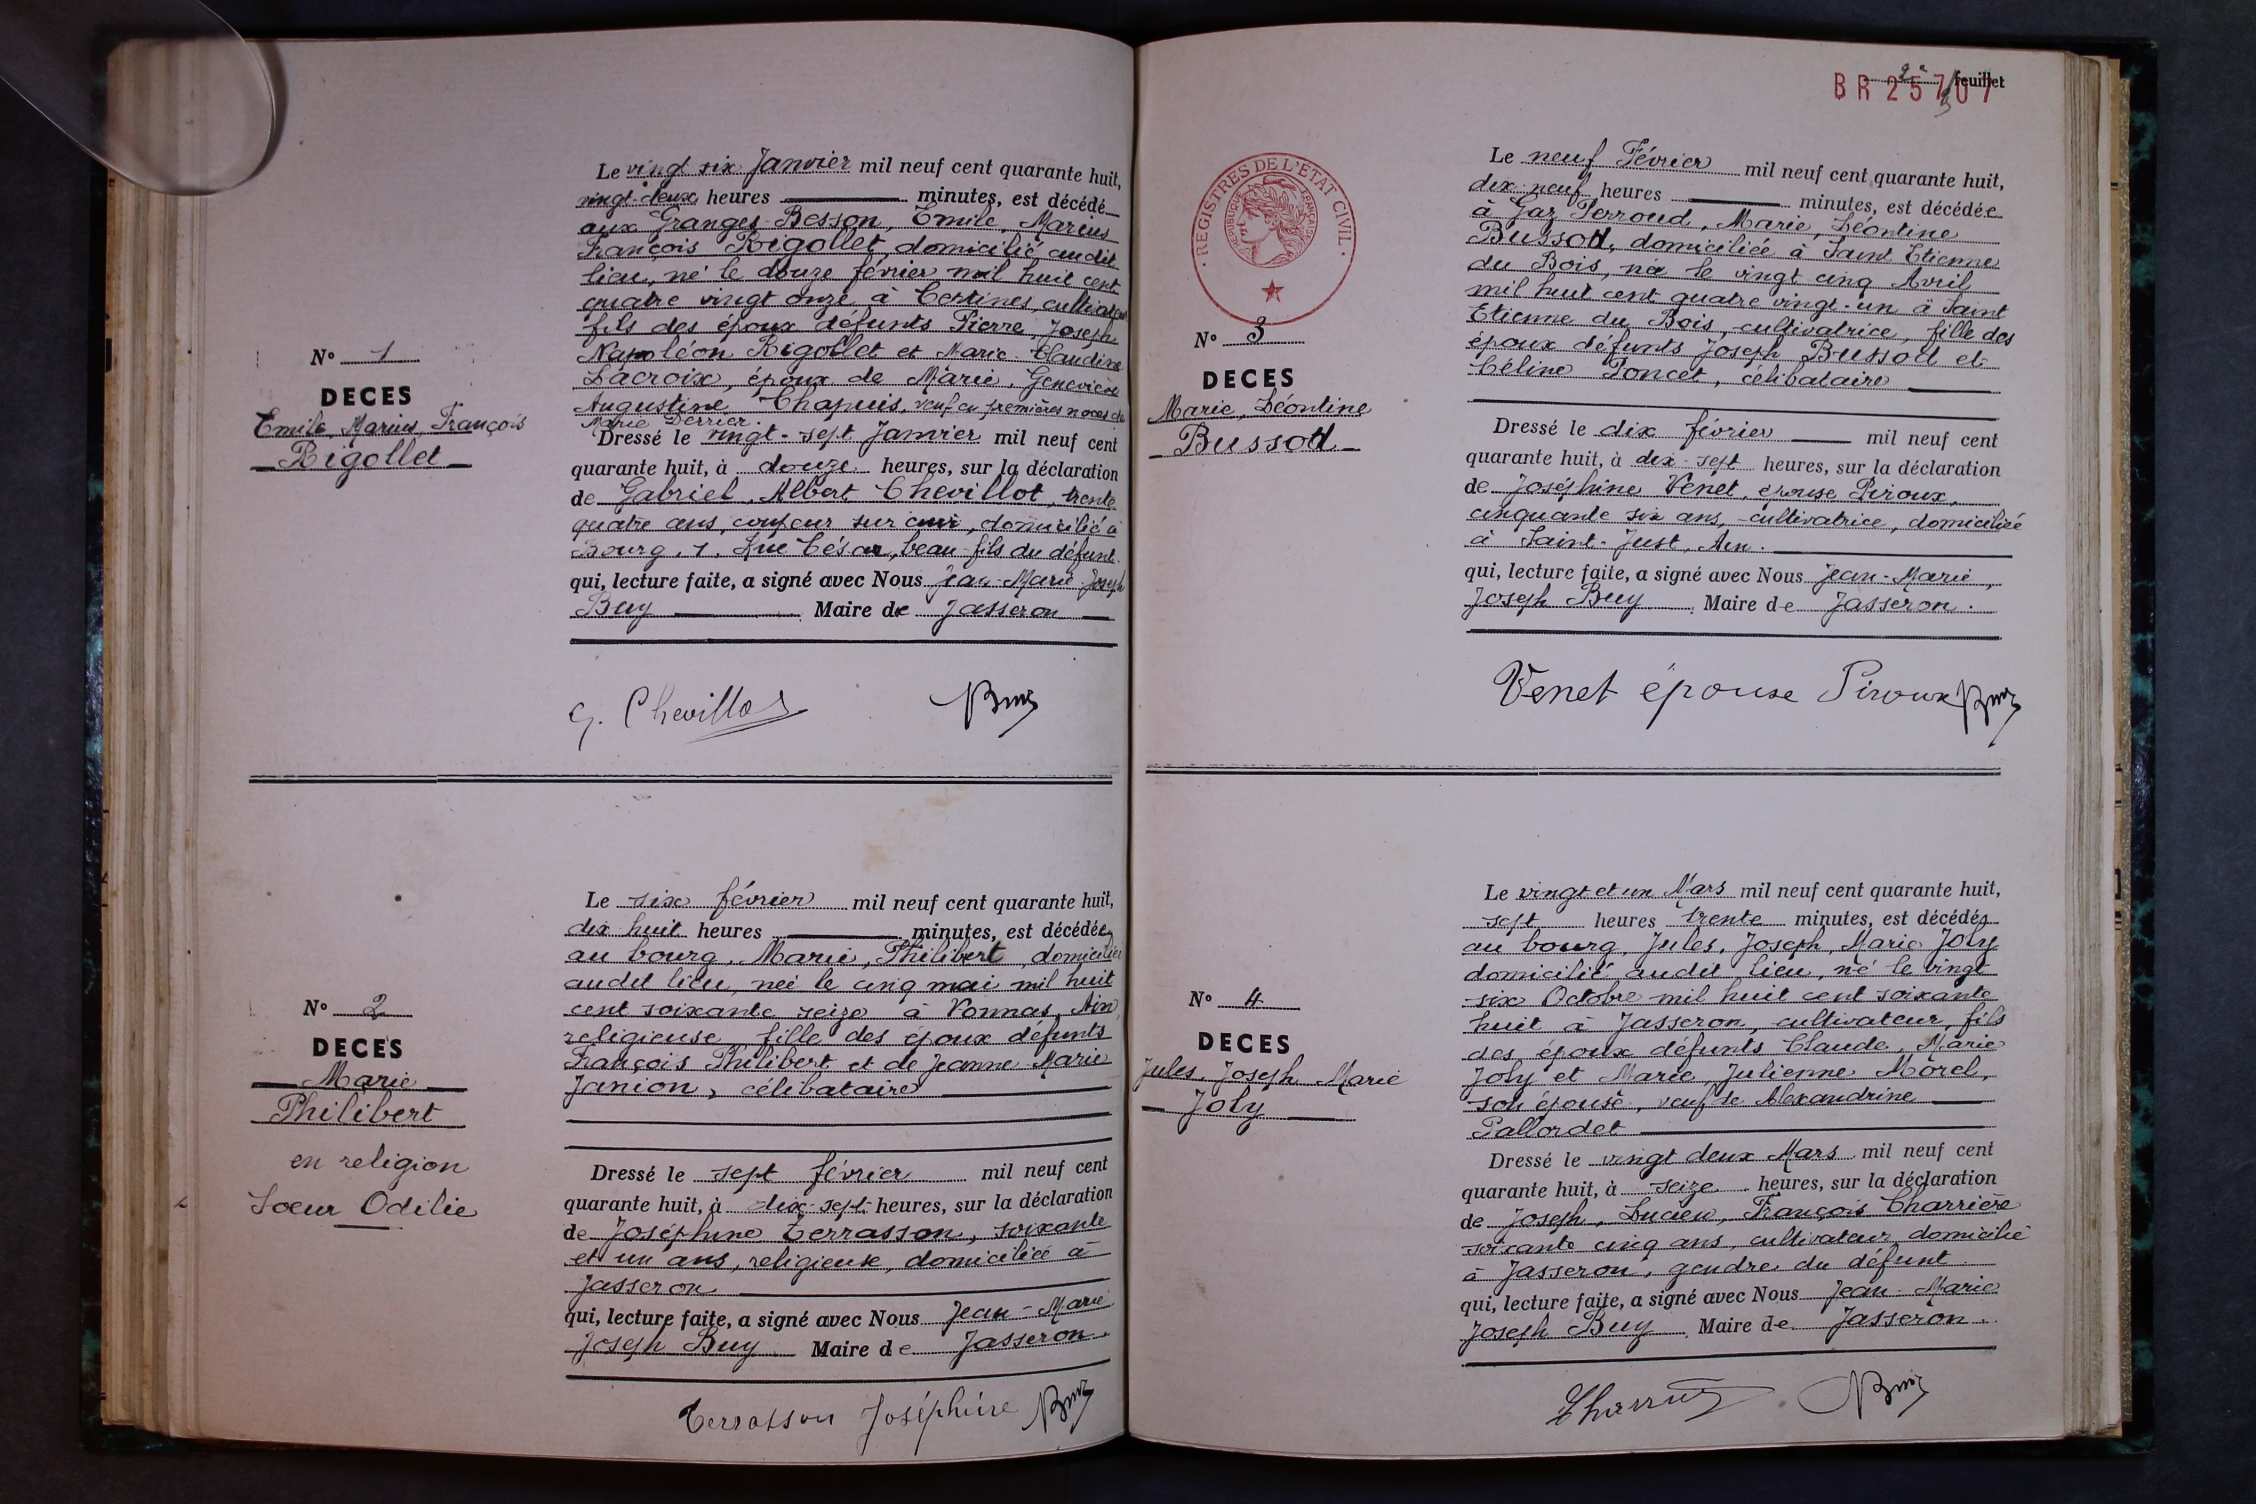 N° 1
DECES
Emile, Marius, François
Rigollet
Le vingt six Janvier mil neuf cent quarante huit,
vingt-deux heures minutes, est décédé
aux Granges-Besson, Emile, Marius
François Rigollet, domicilié audit
lieu, né le douze février mil huit cent
quatre vingt onze à Certines, cultivateur
fils des époux défunts Pierre, Joseph
Napoléon Rigollet et Marie-Claudine
Lacroix, époux de Marie, Geneviève
Augustine Chapuis, veuf en premières noces de
Marie Derrier.
Dressé le vingt-sept Janvier mil neuf cent
quarante huit, à douze heures, sur la déclaration
de Gabriel, Albert Chevillot, trente
quatre ans, coupeur sur cuir, domicilié à
Bourg, 1, Rue César, beau-fils du défunt
qui, lecture faite, a signé avec Nous Jean-Marie Joseph
Buy Maire de Jasseron
G. Chevillot Buy
N° 2
DECES
Marie
Philibert
en religion
Soeur Odilie
Le six février mil neuf cent quarante huit,
dix huit heures minutes, est décédée
au bourg, Marie, Philibert, domiciliée
audit lieu, née le cinq mai mil huit
cent soixante seize à Vonnas, Ain,
religieuse, fille des époux défunts
François Philibert et de Jeanne Marie
Janion, célibataire
Dressé le sept février mil neuf cent
quarante huit, à dix-sept heures, sur la déclaration
de Joséphine Terrasson, soixante
et un ans, religieuse, domiciliée à
Jasseron
qui, lecture faite, a signé avec Nous Jean-Marie
Joseph Buy Maire de Jasseron.
Terrasson Joséphine Buy
2e feuillet
BR 25707
REGISTRES DE L'ETAT CIVIL
REPUBLIQUE FRANÇAISE
N° 3
DECES
Marie, Léontine
Bussod
Le neuf Février mil neuf cent quarante huit,
dix-neuf heures minutes, est décédée
à Gaz Perroud, Marie, Léontine
Bussod, domiciliée à Saint Etienne
du Bois, née le vingt cinq Avril
mil huit cent quatre vingt-un à Saint
Etienne du Bois, cultivatrice, fille des
époux défunts Joseph Bussod et
Céline Poncet, célibataire
Dressé le dix février mil neuf cent
quarante huit, à dix-sept heures, sur la déclaration
de Joséphine Venet, épouse Piroux,
cinquante six ans, cultivatrice, domiciliée
à Saint-Just, Ain.
qui, lecture faite, a signé avec Nous Jean-Marie,
Joseph Buy Maire de Jasseron.
Venet épouse Piroux Buy
N° 4
DECES
Jules, Joseph Marie
Joly
Le vingt et un Mars mil neuf cent quarante huit,
sept heures trente minutes, est décédé
au bourg, Jules, Joseph, Marie Joly
domicilié audit lieu, né le vingt
six Octobre mil huit cent soixante
huit à Jasseron, cultivateur, fils
des époux défunts Claude, Marie
Joly et Marie, Julienne Morel,
son épouse, veuf de Alexandrine
Pallordet
Dressé le vingt deux Mars mil neuf cent
quarante huit, à seize heures, sur la déclaration
de Joseph, Lucien, François Charrière
soixante cinq ans, cultivateur, domicilié
à Jasseron, gendre du défunt
qui, lecture faite, a signé avec Nous Jean-Marie
Joseph Buy Maire de Jasseron.
Buy